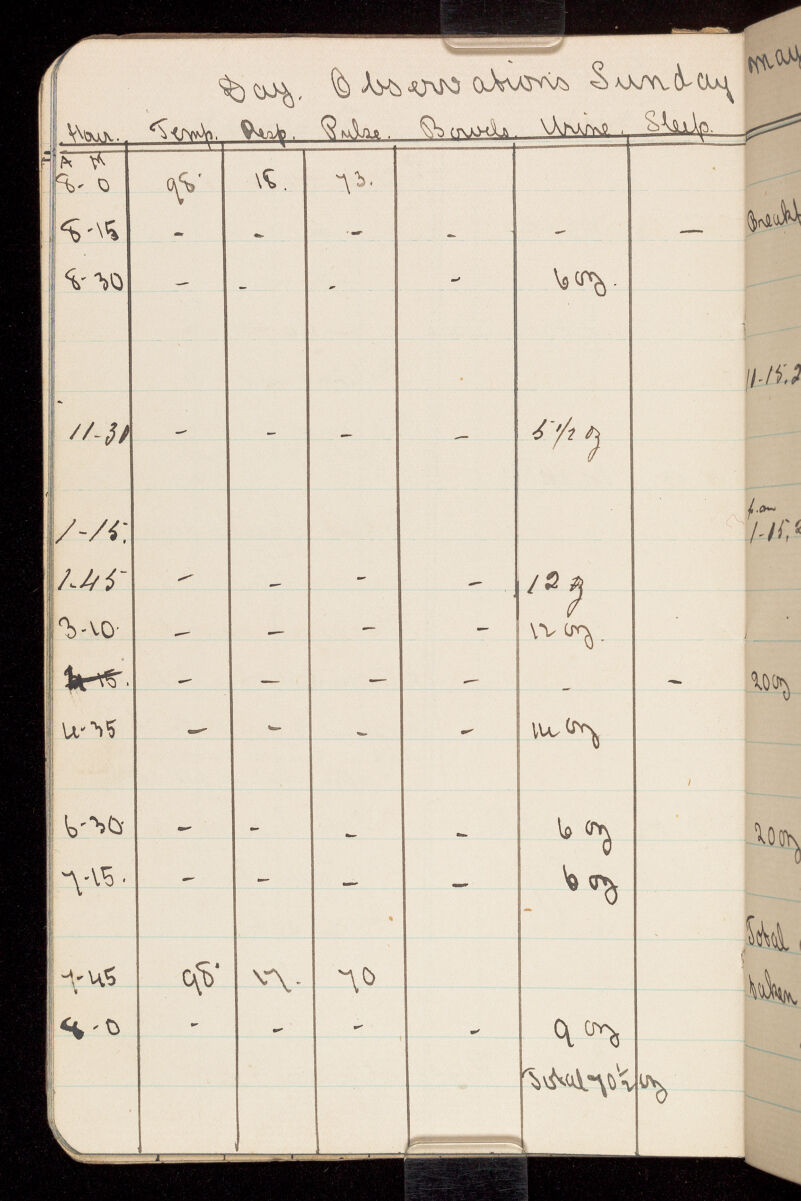 Day. Observations Sunday
Hour. Temp. Resp. Pulse. Bowels. Urine. Sleep.
A M
8-0 98· 18. 73.
8-15 - - - - - -
8-30 - - - - 6 oz.
11-30 - - - - 5 1/2 oz
1-15.
1-45 - - - - 12 oz
3-10. - - - - 12 oz.
4-15. - - - - - -
4-35 - - - - 14 oz
6-30 - - - - 6 oz
7-15. - - - - 6 oz
7-45 98· 17. 70
8-0 - - - - 9 oz
Total 70 1/2 oz
May
11-15.
p.m
1-15.
20 oz
20 oz
Total
Taken